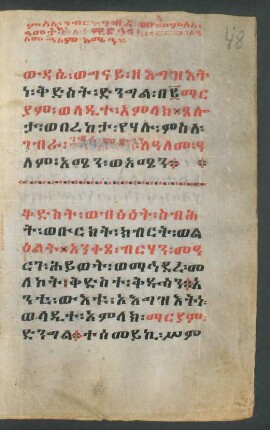 ምስለ፡
ዓመት፡
ለም፡ አሜን፡
ውዳሴ፡ ወግናይ፡ ዘእግዝእት
ነ፡ ቅድስት፡ ድንግል፡ በ፪ ማር
ያም፡ ወላዲተ፡ አምላክ፡ ጸሎ
ታ፡ ወበረከታ፡ የሃሉ፡ ምስለ፡
ገብራ፡ ለዓለመ፡ ዓ
ለም፡ አሜን፡ ወአሜን፡
ቅድስት፡ ወብፅዕት፡ ስብሕ
ት፡ ወቡርክት፡ ክብርት፡ ወል
ዕልት፡ አንቀጸ፡ ብርሃን፡ መዓ
ርገ፡ ሕይወት፡ ወማኅደረ፡ መ
ለኮት፡ ቅድስተ፡ ቅዱሳን፡ አ
ንቲ፡ ውእቱ፡ እግዝእትነ፡
ወላዲተ፡ አምላክ፡ ማርያም፡
ድንግል፡ ተሰመይኪ፡ ሥም
48